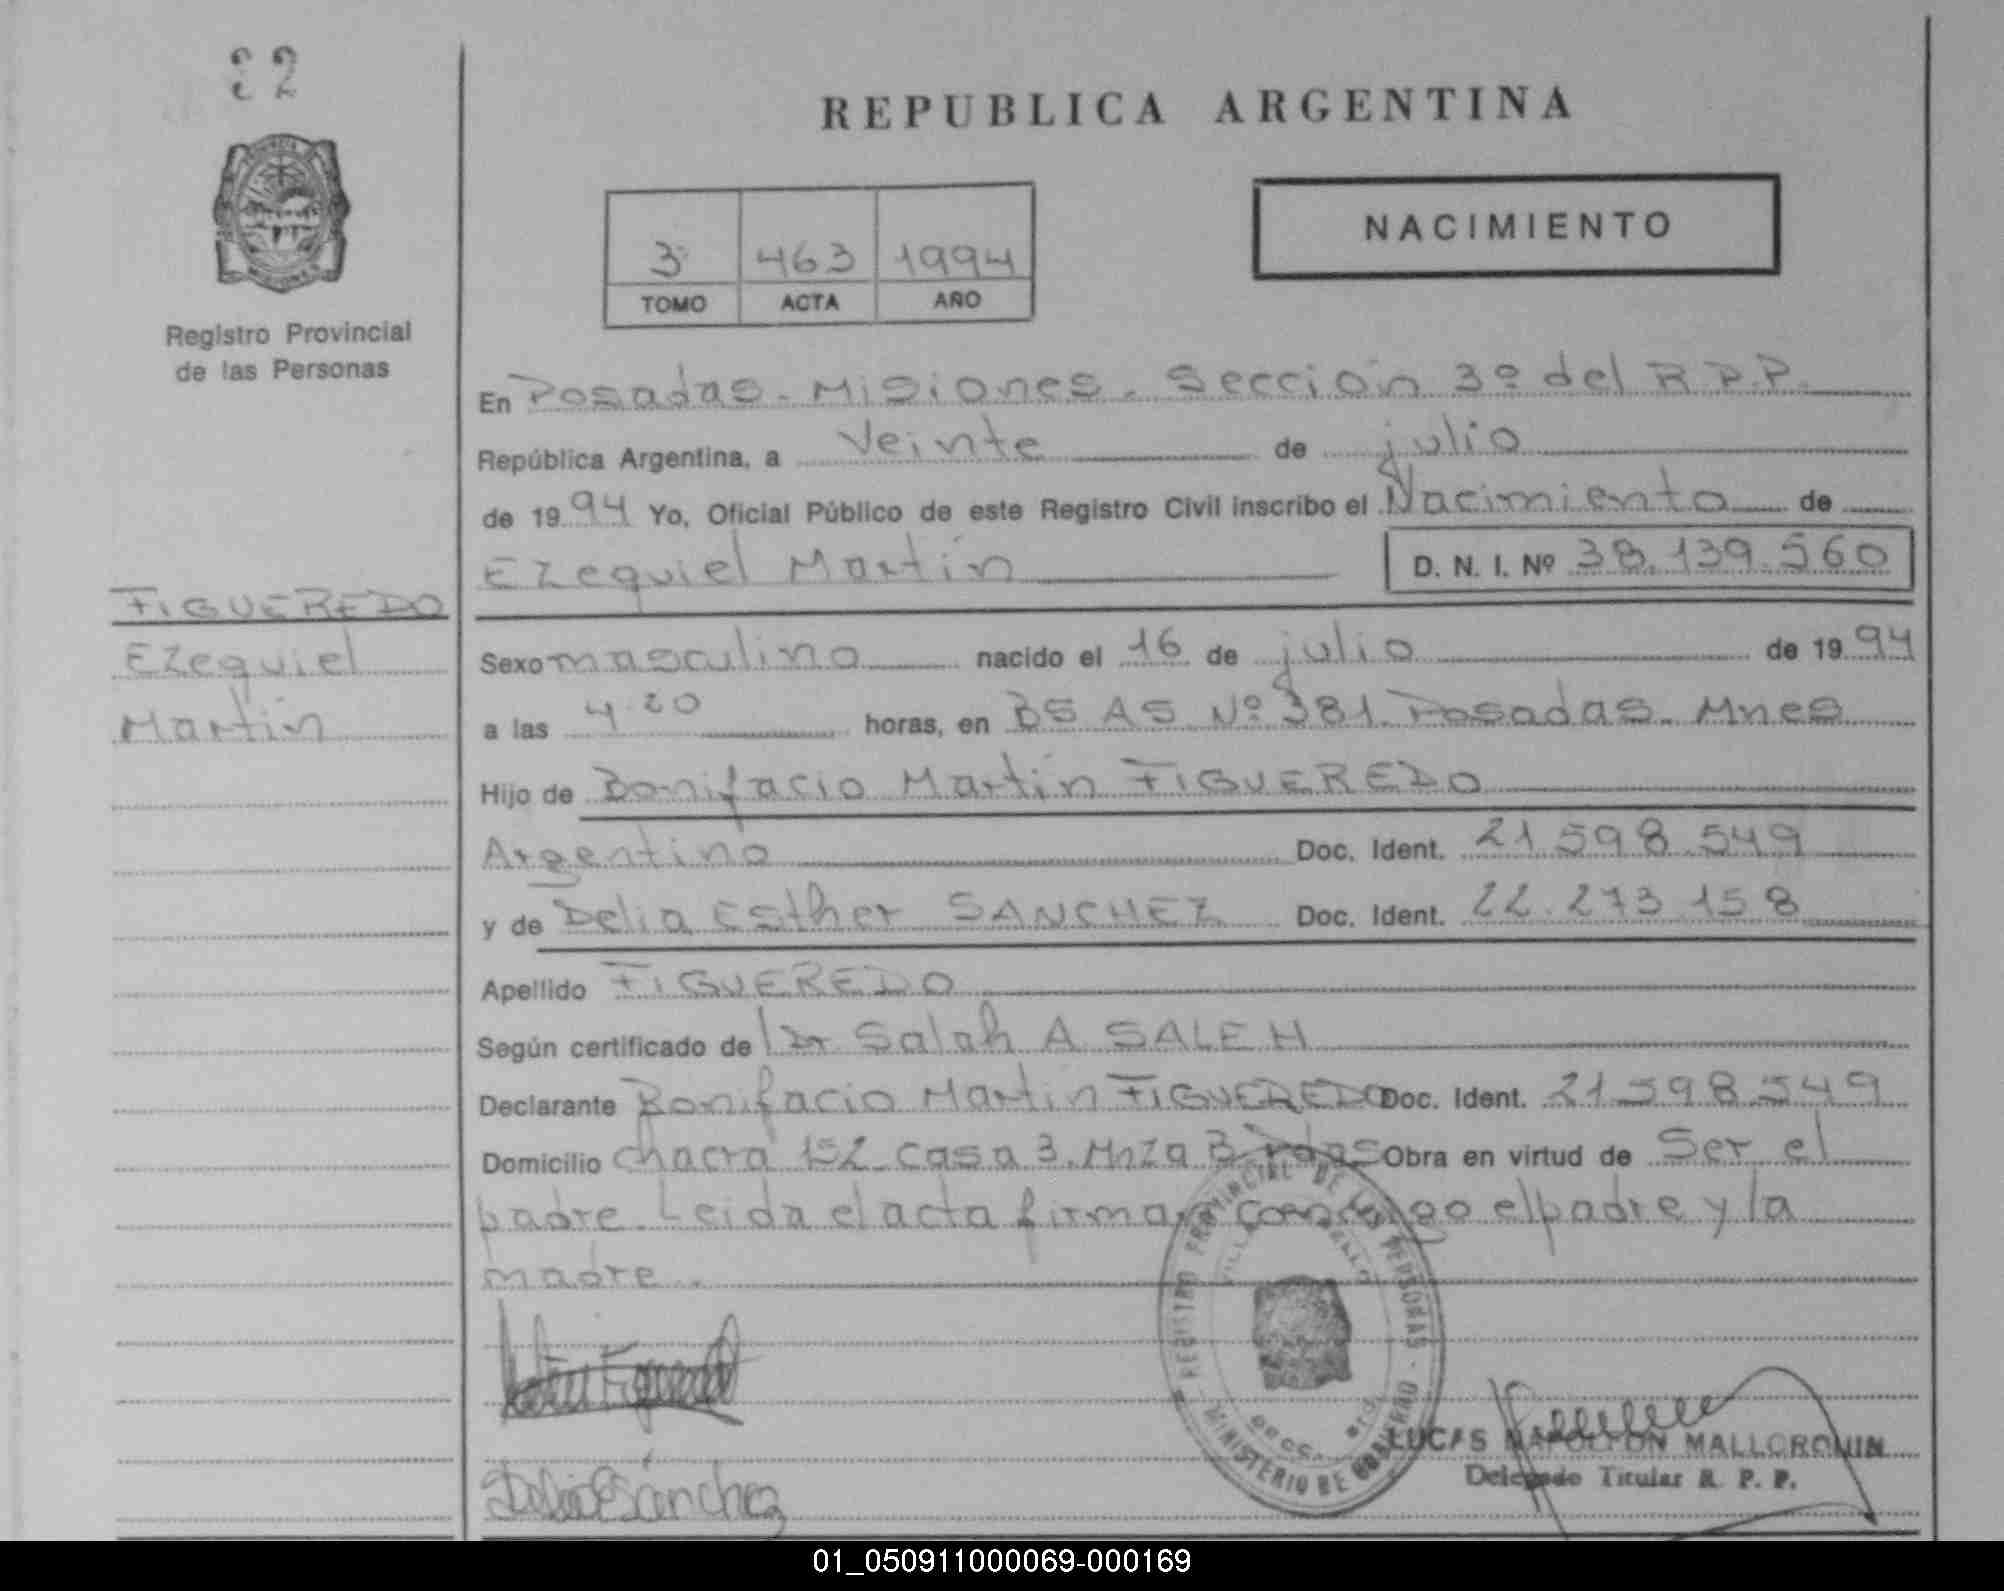 32
REPUBLICA ARGENTINA
3º 463 1994
TOMO ACTA AÑO
NACIMIENTO
Registro Provincial
de las Personas
En Posadas - Misiones. Sección 3º del R.P.P.
República Argentina, a Veinte de julio
de 1994 Yo, Oficial Público de este Registro Civil inscribo el Nacimiento de
Ezequiel Martín D. N. I. Nº 38.139.560
FIGUEREDO
Ezequiel
Martín
Sexo masculino nacido el 16 de julio de 1994
a las 4.20 horas, en BS AS Nº 381. Posadas. Mnes
Hijo de Bonifacio Martín FIGUEREDO
Argentino Doc. Ident. 21.598.549
y de Delia Esther SANCHEZ Doc. Ident. 22.273.158
Apellido FIGUEREDO
Según certificado de Dr Salah A SALEH
Declarante Bonifacio Martín FIGUEREDO Doc. Ident. 21.598.549
Domicilio chacra 152 casa 3. Mnza B Pdas Obra en virtud de Ser el
padre. Leida el acta firman conmigo el padre y la
madre.
REGISTRO PROVINCIAL DE LAS PERSONAS
MINISTERIO DE GOBIERNO
LUCAS NAPOLEON MALLORQUIN
Delegado Titular R. P. P.
Delia E Sánchez
01_050911000069-000169